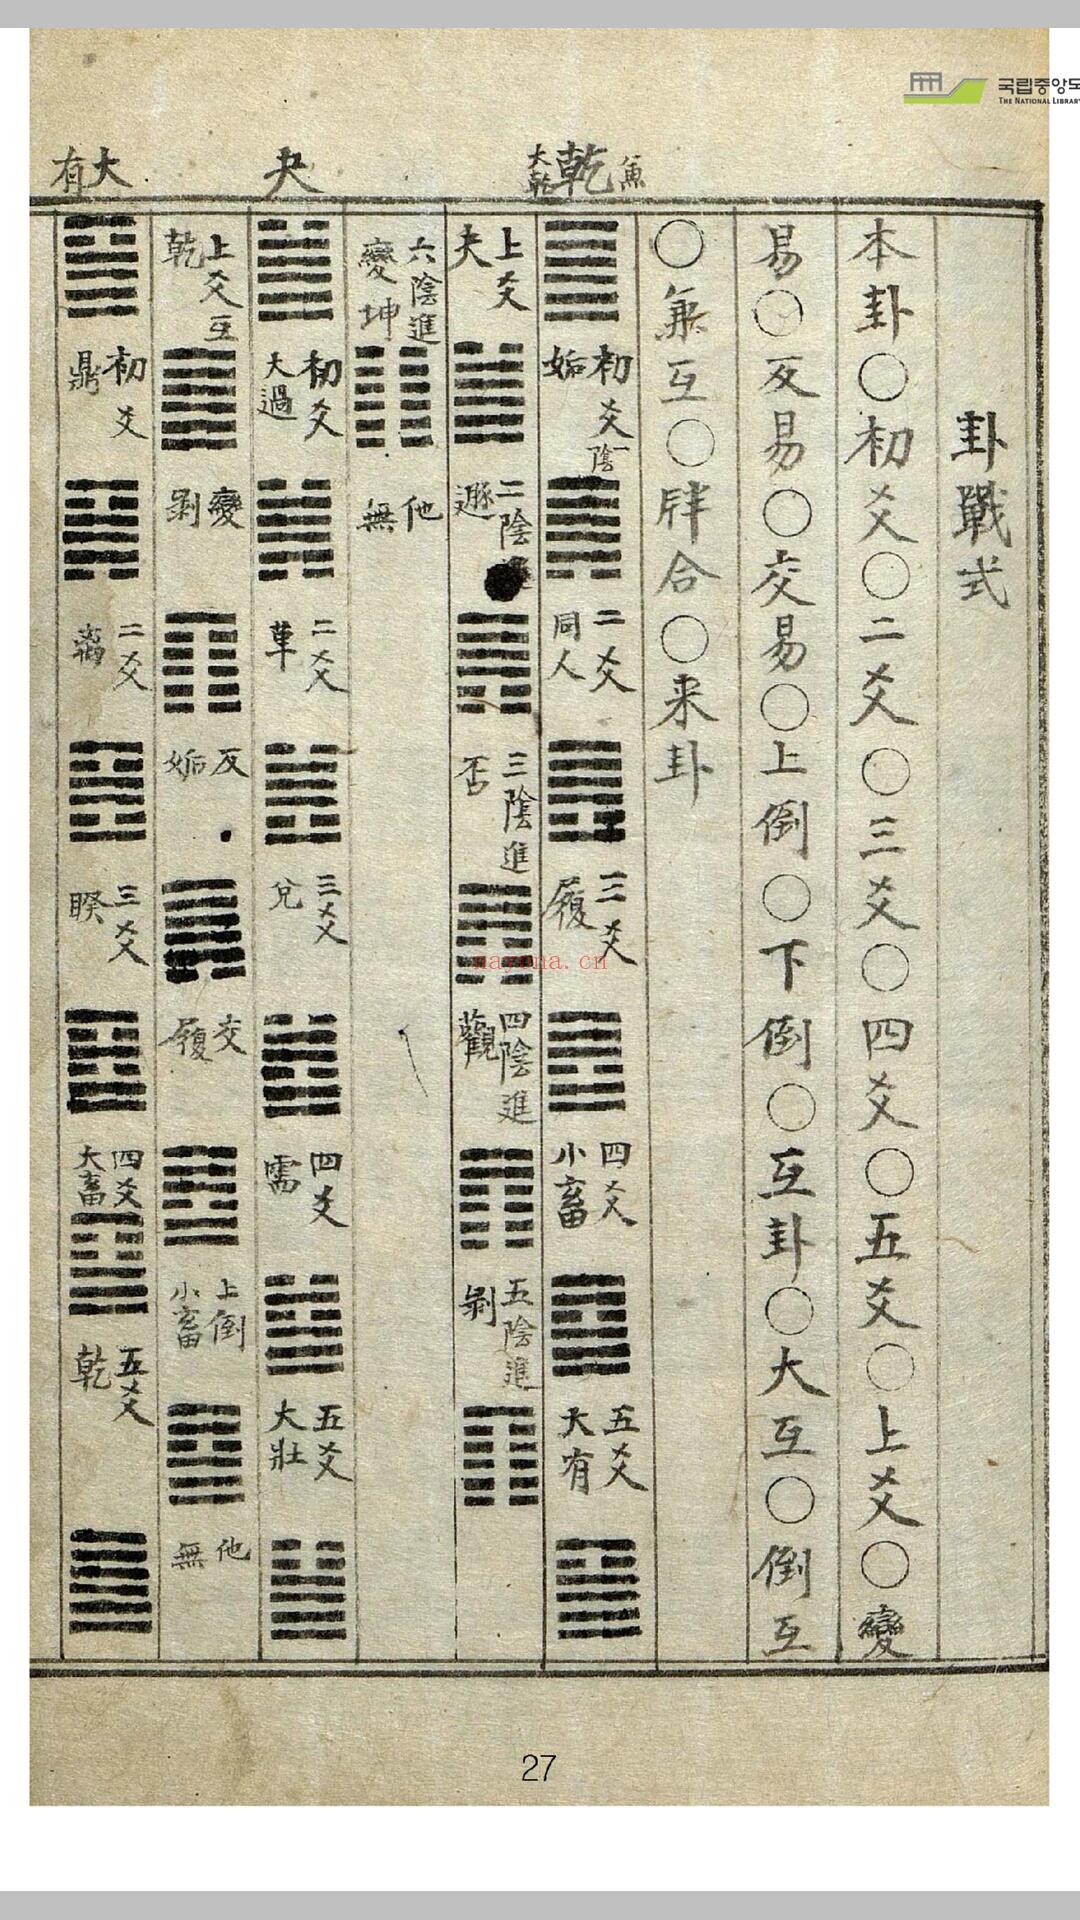 국립중앙도
THE NATIONAL LIBRARY
卦戰式
本卦〇初爻〇二爻〇三爻〇四爻〇五爻〇上爻〇變
易〇反易〇交易〇上倒〇下倒〇互卦〇大互〇倒互
〇兼互〇牉合〇来卦
大乾 乾
初爻 姤 一陰
二爻 同人
三爻 履
四爻 小畜
五爻 大有
上爻 夬
二陰 遯
三陰進 否
四陰進 觀
五陰進 剝
六陰進 變坤
他無
夬
初爻 大過
二爻 革
三爻 兌
四爻 需
五爻 大壯
上爻互 乾
變 剝
反 姤
交 履
上倒 小畜
他無
大有
初爻 鼎
二爻 離
三爻 睽
四爻 大畜
五爻 乾
nayona.cn
27